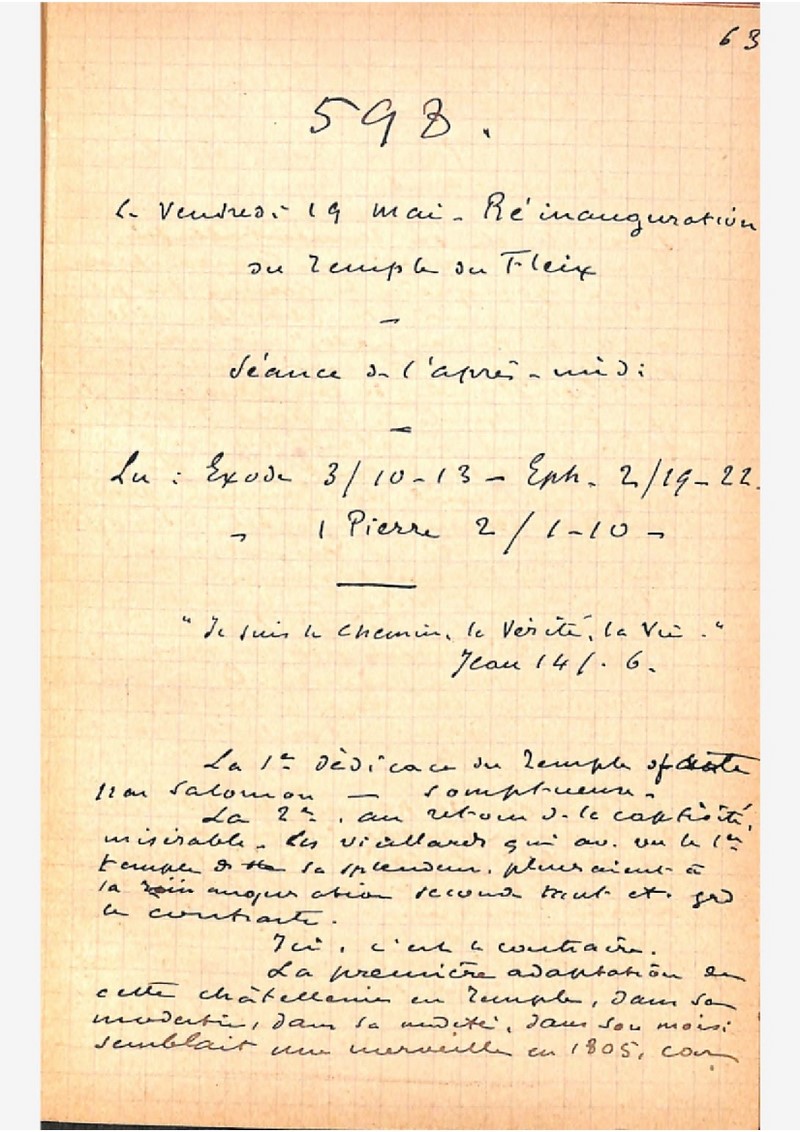 63
598.
Le Vendredi 19 mai - Réinauguration
du Temple du Fleix
Séance de l'après-midi
Lu : Exode 3/10-13 - Eph. 2/19-22.
1 Pierre 2/1-10 -
"Je suis le chemin, la Vérité, la Vie."
Jean 14/. 6.
La 1re dédicace du Temple
par Salomon — somptueuse.
La 2me, au retour de la captivité,
misérable. Les vieillards qui av. vu le 1er
temple ds tte sa splendeur, pleuraient à
la inauguration seconde tant et. grd
le contraste.
Ici, c'est le contraire.
La première adaptation de
cette châtellenie en Temple, dans sa
modestie, dans sa nudité, dans son moisi
semblait une merveille en 1805, car